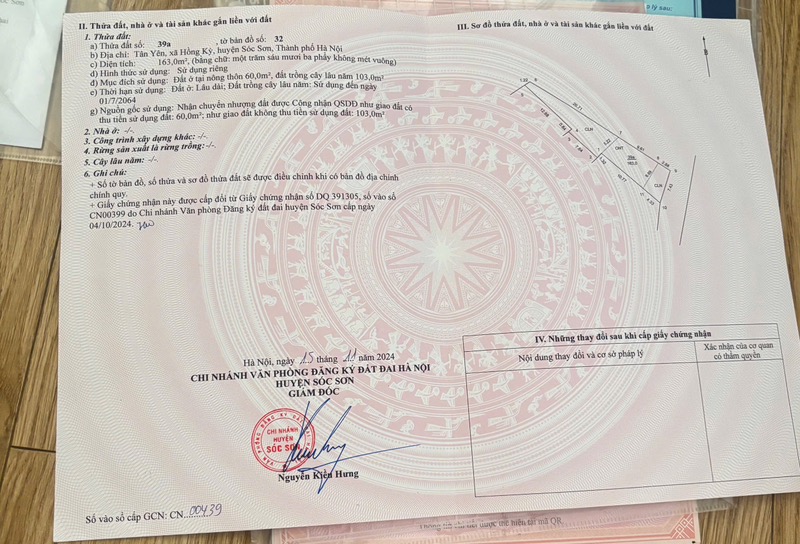 II. Thửa đất, nhà ở và tài sản khác gắn liền với đất
1. Thửa đất:
a) Thửa đất số: 39a , tờ bản đồ số: 32
b) Địa chỉ: Tân Yên, xã Hồng Kỳ, huyện Sóc Sơn, Thành phố Hà Nội
c) Diện tích: 163,0m², (bằng chữ: một trăm sáu mươi ba phẩy không mét vuông)
d) Hình thức sử dụng: Sử dụng riêng
đ) Mục đích sử dụng: Đất ở tại nông thôn 60,0m², đất trồng cây lâu năm 103,0m²
e) Thời hạn sử dụng: Đất ở: Lâu dài; Đất trồng cây lâu năm: Sử dụng đến ngày
01/7/2064
g) Nguồn gốc sử dụng: Nhận chuyển nhượng đất được Công nhận QSDĐ như giao đất có
thu tiền sử dụng đất: 60,0m²; như giao đất không thu tiền sử dụng đất: 103,0m²
2. Nhà ở: -/-
3. Công trình xây dựng khác: -/-
4. Rừng sản xuất là rừng trồng: -/-
5. Cây lâu năm: -/-
6. Ghi chú:
+ Số tờ bản đồ, số thửa và sơ đồ thửa đất sẽ được điều chỉnh khi có bản đồ địa chính
chính quy.
+ Giấy chứng nhận này được cấp đổi từ Giấy chứng nhận số DQ 391305, số vào sổ
CN00399 do Chi nhánh Văn phòng Đăng ký đất đai huyện Sóc Sơn cấp ngày
04/10/2024.
Hà Nội, ngày 15 tháng 11 năm 2024
CHI NHÁNH VĂN PHÒNG ĐĂNG KÝ ĐẤT ĐAI HÀ NỘI
HUYỆN SÓC SƠN
GIÁM ĐỐC
CHI NHÁNH
HUYỆN
SÓC SƠN
Nguyễn Kiên Hưng
Số vào sổ cấp GCN: CN 00439
III. Sơ đồ thửa đất, nhà ở và tài sản khác gắn liền với đất
CLN
ONT
39a
CLN
IV. Những thay đổi sau khi cấp giấy chứng nhận
Nội dung thay đổi và cơ sở pháp lý
Xác nhận của cơ quan
có thẩm quyền
lý sau: